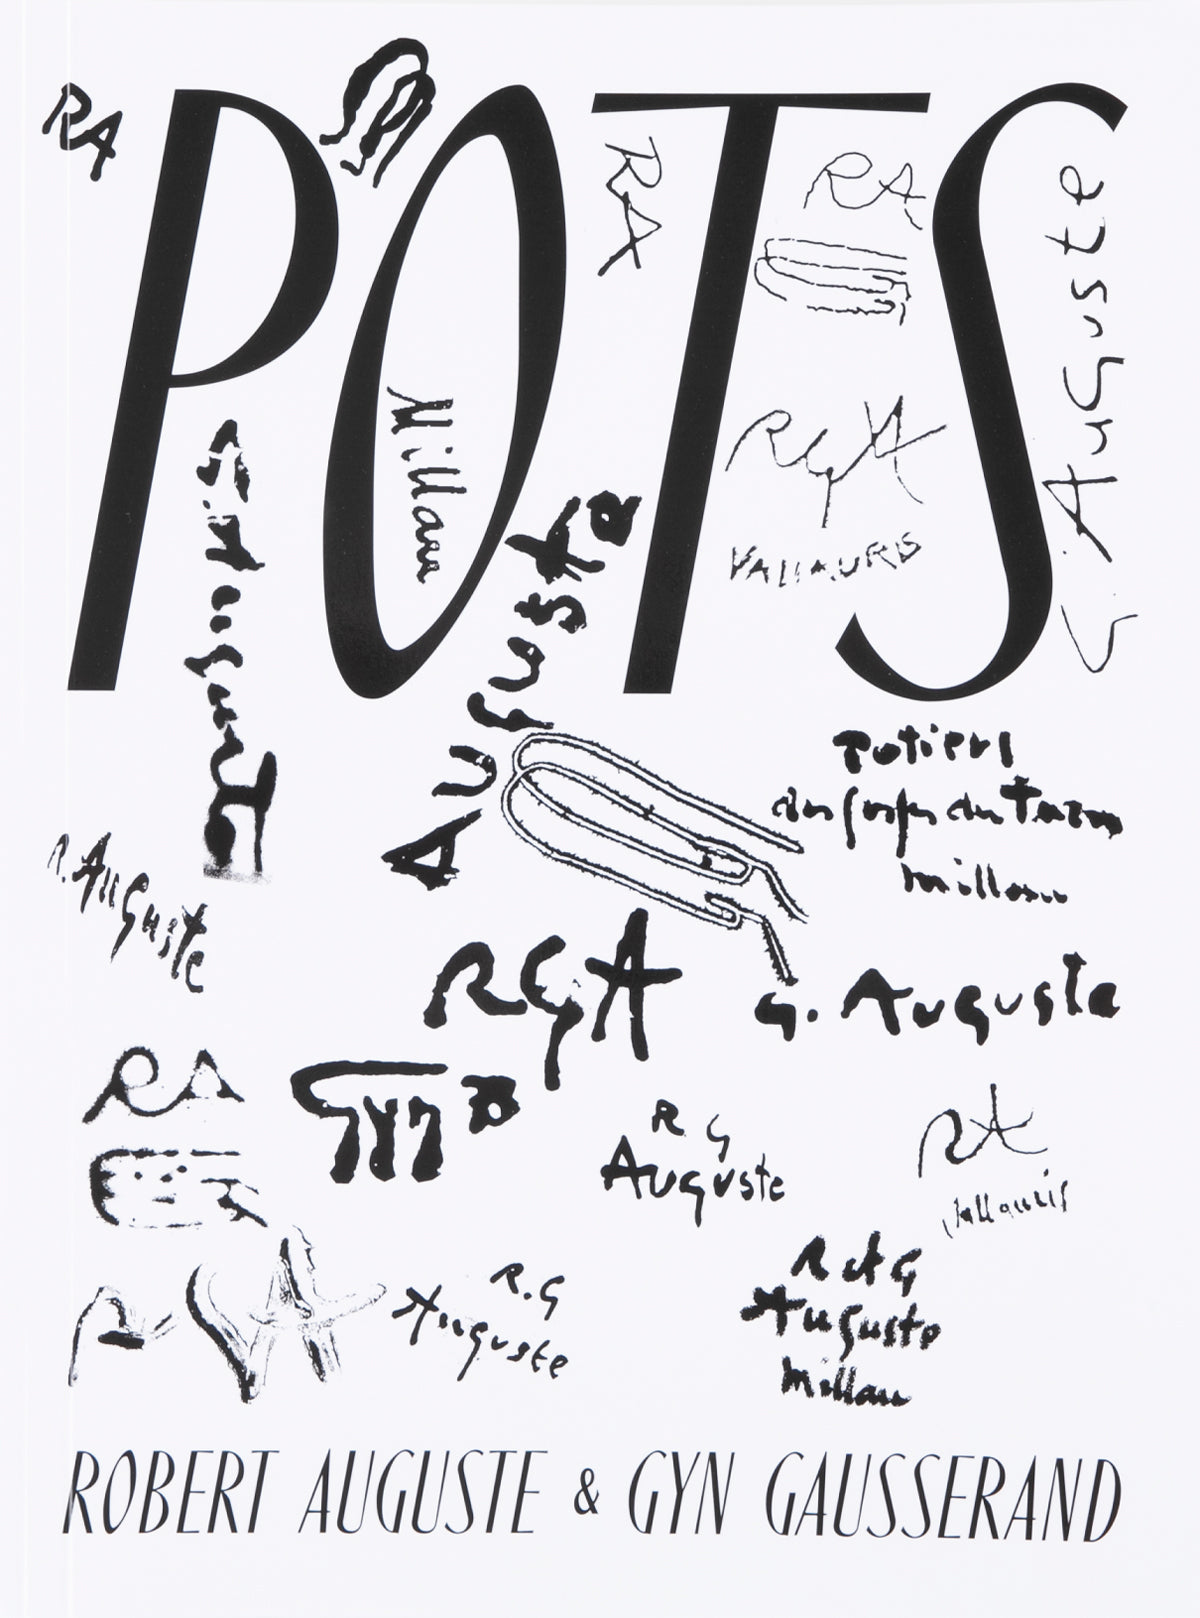 POTS
RA
RA
RA
G. Auguste
Millau
RGA
VALLAURIS
Auguste
Potiers
des gorges du Tarn
Millau
R. Auguste
RGA
G. Auguste
RA
GYN
R G
Auguste
RA
Vallauris
R.G
Auguste
R et G
Auguste
Millau
ROBERT AUGUSTE & GYN GAUSSERAND